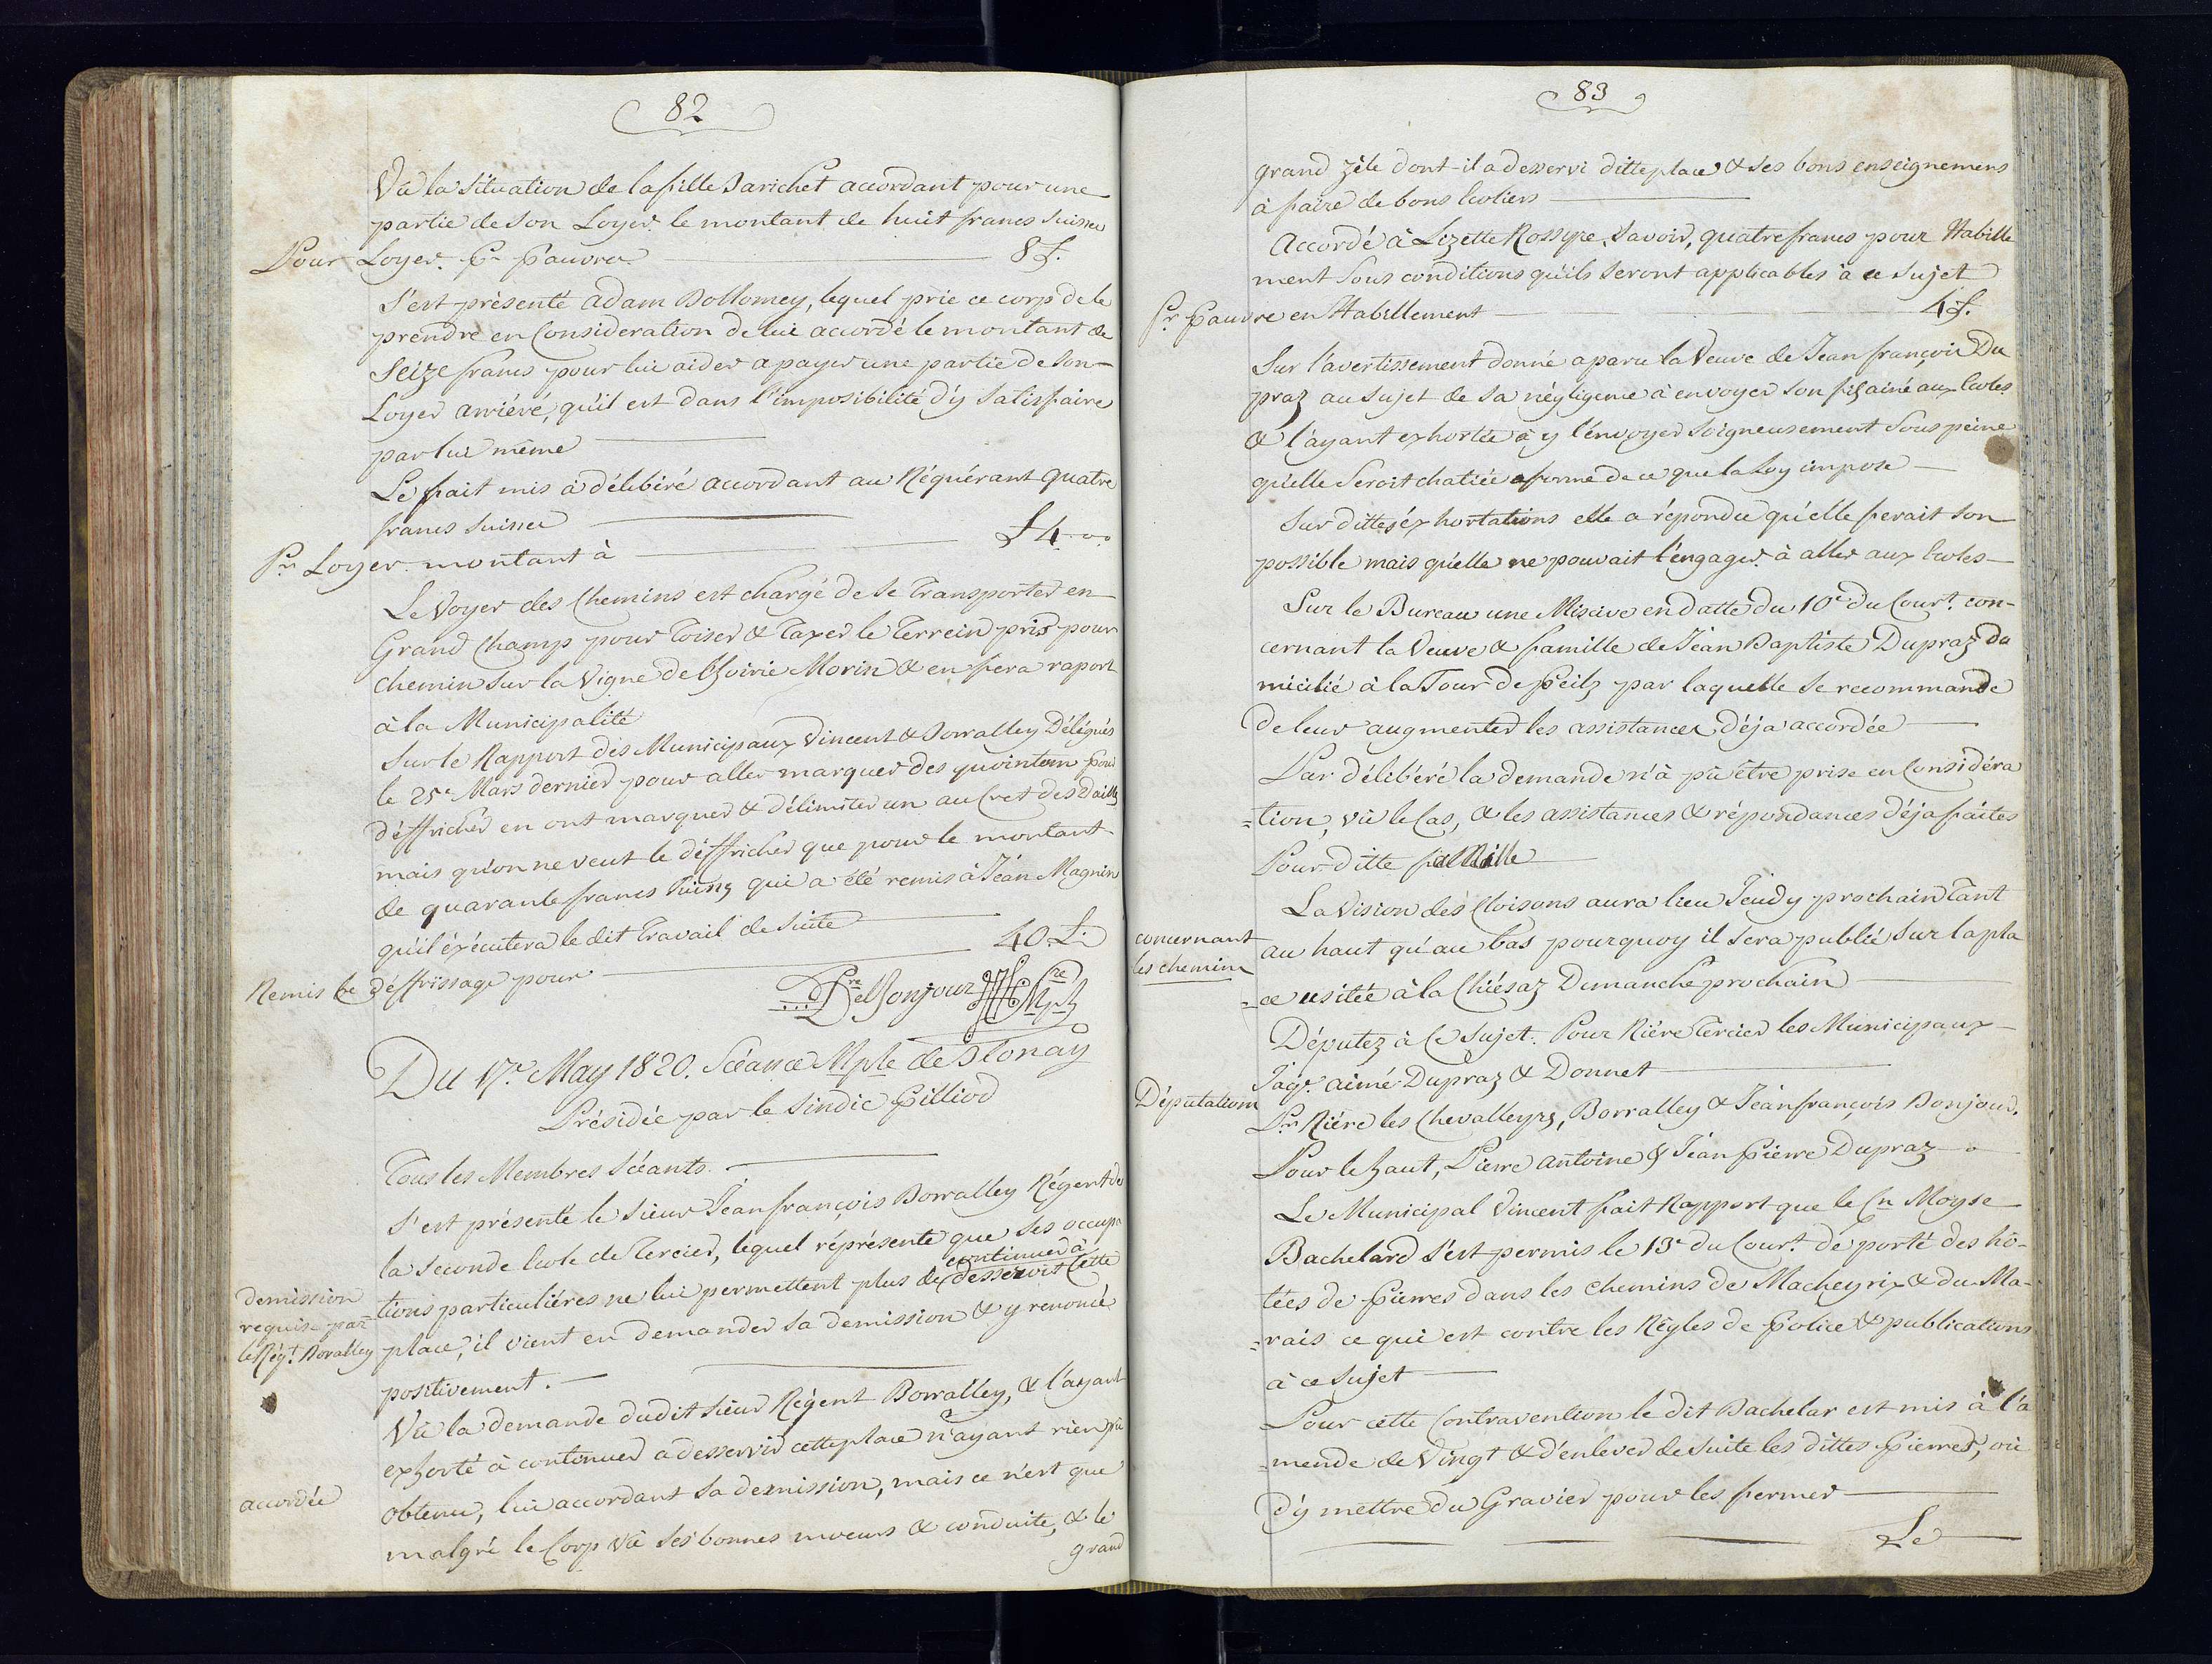 82
Vû la situation de la fille Darichet accordant pour une
partie de son Loyer le montant de huit francs suisses
Pour Loyer. Pr Pauvres 8 f.
S'est présenté adam Dollomey, lequel prie ce corps de le
prendre en Consideration de lui accordé le montant de
Seize francs pour lui aider a payer une partie de son
Loyer arriéré, qu'il est dans l'imposibilité d'y satisfaire
par lui même
Le fait mis à délibéré accordant au Réquérant quatre
francs suisses
Pr Loyer montant à £ 4 --
Le Voyer des Chemins est chargé de se Transporter en
Grand Champ pour Toiser & Taxer le Terrein pris pour
chemin sur la Vigne de l'hoirie Morin & en fera raport
à la Municipalité
Sur le Rapport des Municipaux Vincent & Borralley Délégués
le 25e Mars dernier pour aller marquer des pour
déffricher en ont marquer & délimiter un au Cret des Dailles
mais qu'on ne veut le déffricher que pour le montant
de quarante francs qui a été remis à Jéan Magnin
qu'il éxécutera le dit Travail de suite
Remis ce déffrissage pour 40 L.
Pre DelBonjour Sre Mple
Du 17e May 1820. Scéance Mple de Blonay
Présidée par le Sindic Pilliod
Tous les Membres Scéants.
S'est présenté le Sieur Jéan françois Borralley Régent de
la seconde Ecole de Tercier, lequel réprésente que ses occupa
continuer à
tions particuliéres ne lui permettent plus de desservir Cette
demission
requise par
le Régt. Boralley
place, il vient en demander sa demission & y renoncé
positivement. —
Vû la demande dudit Sieur Régent Borralley, & l'ayant
exhorté à continuer a desservir cette place n'ayant rien pû
accordée
obtenu, lui accordant sa demission, mais ce n'est que
malgré le Corp Vû ses bonnes moeurs & conduite, & le
grand
83
grand zèle dont il a desservi ditte place & ses bons enseignemens
à faire de bons Ecoliers
Accordé à Lizette Rossyre, Savoir, quatre francs pour Habille
ment sous conditions qu'ils seront applicables à ce sujet
Pr Pauvre en Habillement 4 f.
Sur l'avertissement donné a paru la Veuve de Jean françois Du
praz au sujet de sa négligence à envoyer son fils ainé aux Ecoles
& l'ayant exhortée à y l'énvoyer soigneusement Sous peine
qu'elle Seroit chatiée a forme de ce que la Loy impose
Sur dittes éxhortations elle a répondu qu'elle ferait son
possible mais qu'elle ne pouvait l'engager à aller aux Ecoles
Sur le Bureau une Missive en datte du 10e du Court. con-
cernant la Veuve & famille de Jéan Baptiste Dupraz do
micilié à la Tour de Peilz par laquelle se recommande
de leur augmenter les assistances déja accordée
Par délibéré la demande n'à pû être prise en Considéra
=tion, vû le Cas, & les assistances & répondances déja faites
Pour ditte famille
La Vision des Cloisons aura lieu Jeudy prochain Tant
concernant
les chemins
au haut qu'au bas pourquoy il sera publié sur la pla
=ce usitée à la Chiésaz Dimanche prochain
Députez à Ce sujet. Pour Riére Tercier les Municipaux
Jaqs. aimé Dupraz & Donnet
Députations
Pr Riére les Chevalleyrs, Borralley & Jéan françois Bonjour.
Pour le haut, Pierre Antoine & Jéan Pierre Dupraz
Le Municipal Vincent fait Rapport que le Cn Moyse
Bachelard s'est permis le 13e du Court. dé porté des hô-
tées de Pierres dans les chemins de Macheyrix & du Ma-
=rais ce qui est contre les Régles de Police & publications
à ce sujet
Pour cette Contravention le dit Bachelar est mis à l'a
=mende de Vingt & d'enlever de suite les dittes Pierres, ou
d'y mettre du Gravier pour les fermer
Le